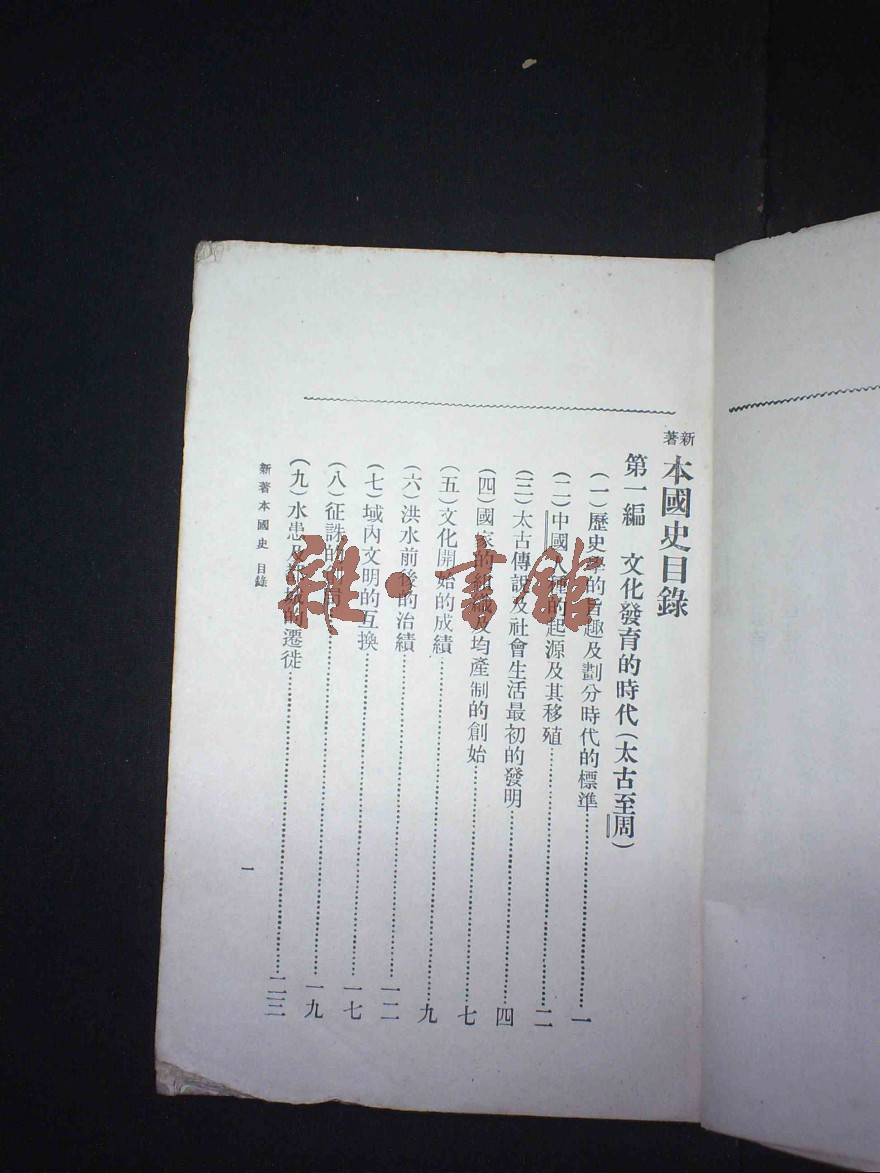 新著本國史目錄
第一編 文化發育的時代(太古至周)
(一)歷史學的旨趣及劃分時代的標準……一
(二)中國人種的起源及其移殖……二
(三)太古傳說及社會生活最初的發明……四
(四)國家的組織及均產制的創始……七
(五)文化開始的成績……九
(六)洪水前後的治績……一二
(七)域內文明的互換……一七
(八)征誅的……一九
(九)水患及都城的遷徙……二三
新著本國史 目錄
一
雜·書館